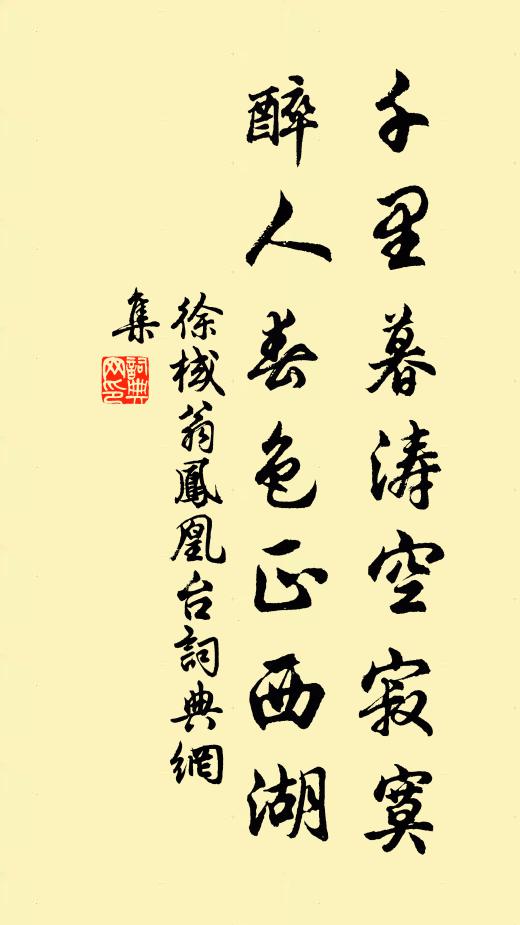 千里暮涛空寂寞
醉人春色正西湖
徐棫翁鳳凰台詞典網
集
詞典网印